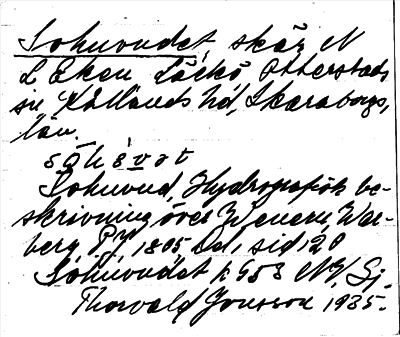 Sohuvudet, skär N
L Eken Läckö Otterstads
sn Kållands hd, Skaraborgs
län.
såhṣvat
Sohuvud, Hydrografisk be-
skrivning över Wenern, War-
berg P.J, 1805 Del, sid 120
Sohuvudet k 953 NV, Sj.
Thorvald Jonsson 1935.